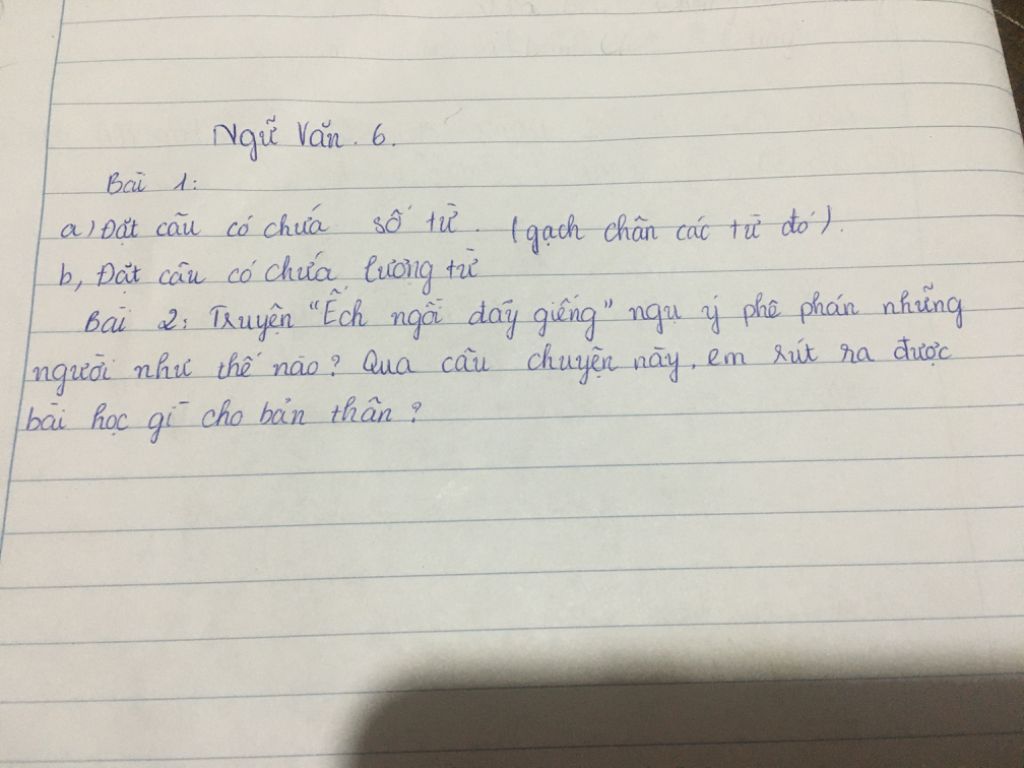 Ngữ Văn. 6.
Bài 1:
a) Đặt câu có chứa số từ. (gạch chân các từ đó).
b, Đặt câu có chứa lượng từ
Bài 2: Truyện "Ếch ngồi đáy giếng" ngụ ý phê phán những
người như thế nào? Qua câu chuyện này, em rút ra được
bài học gì cho bản thân?